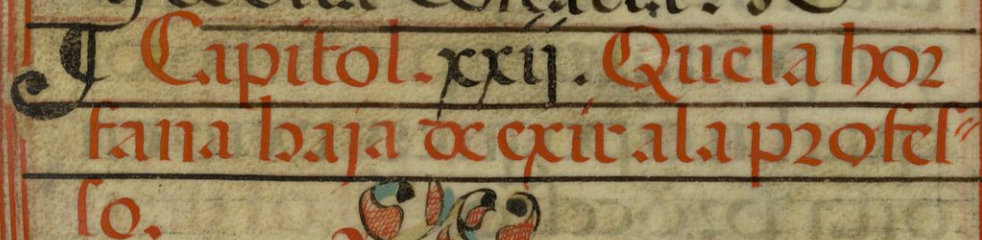 ¶ Capitol .xxij. Que la hor
tana haja de exir a la profes
so.